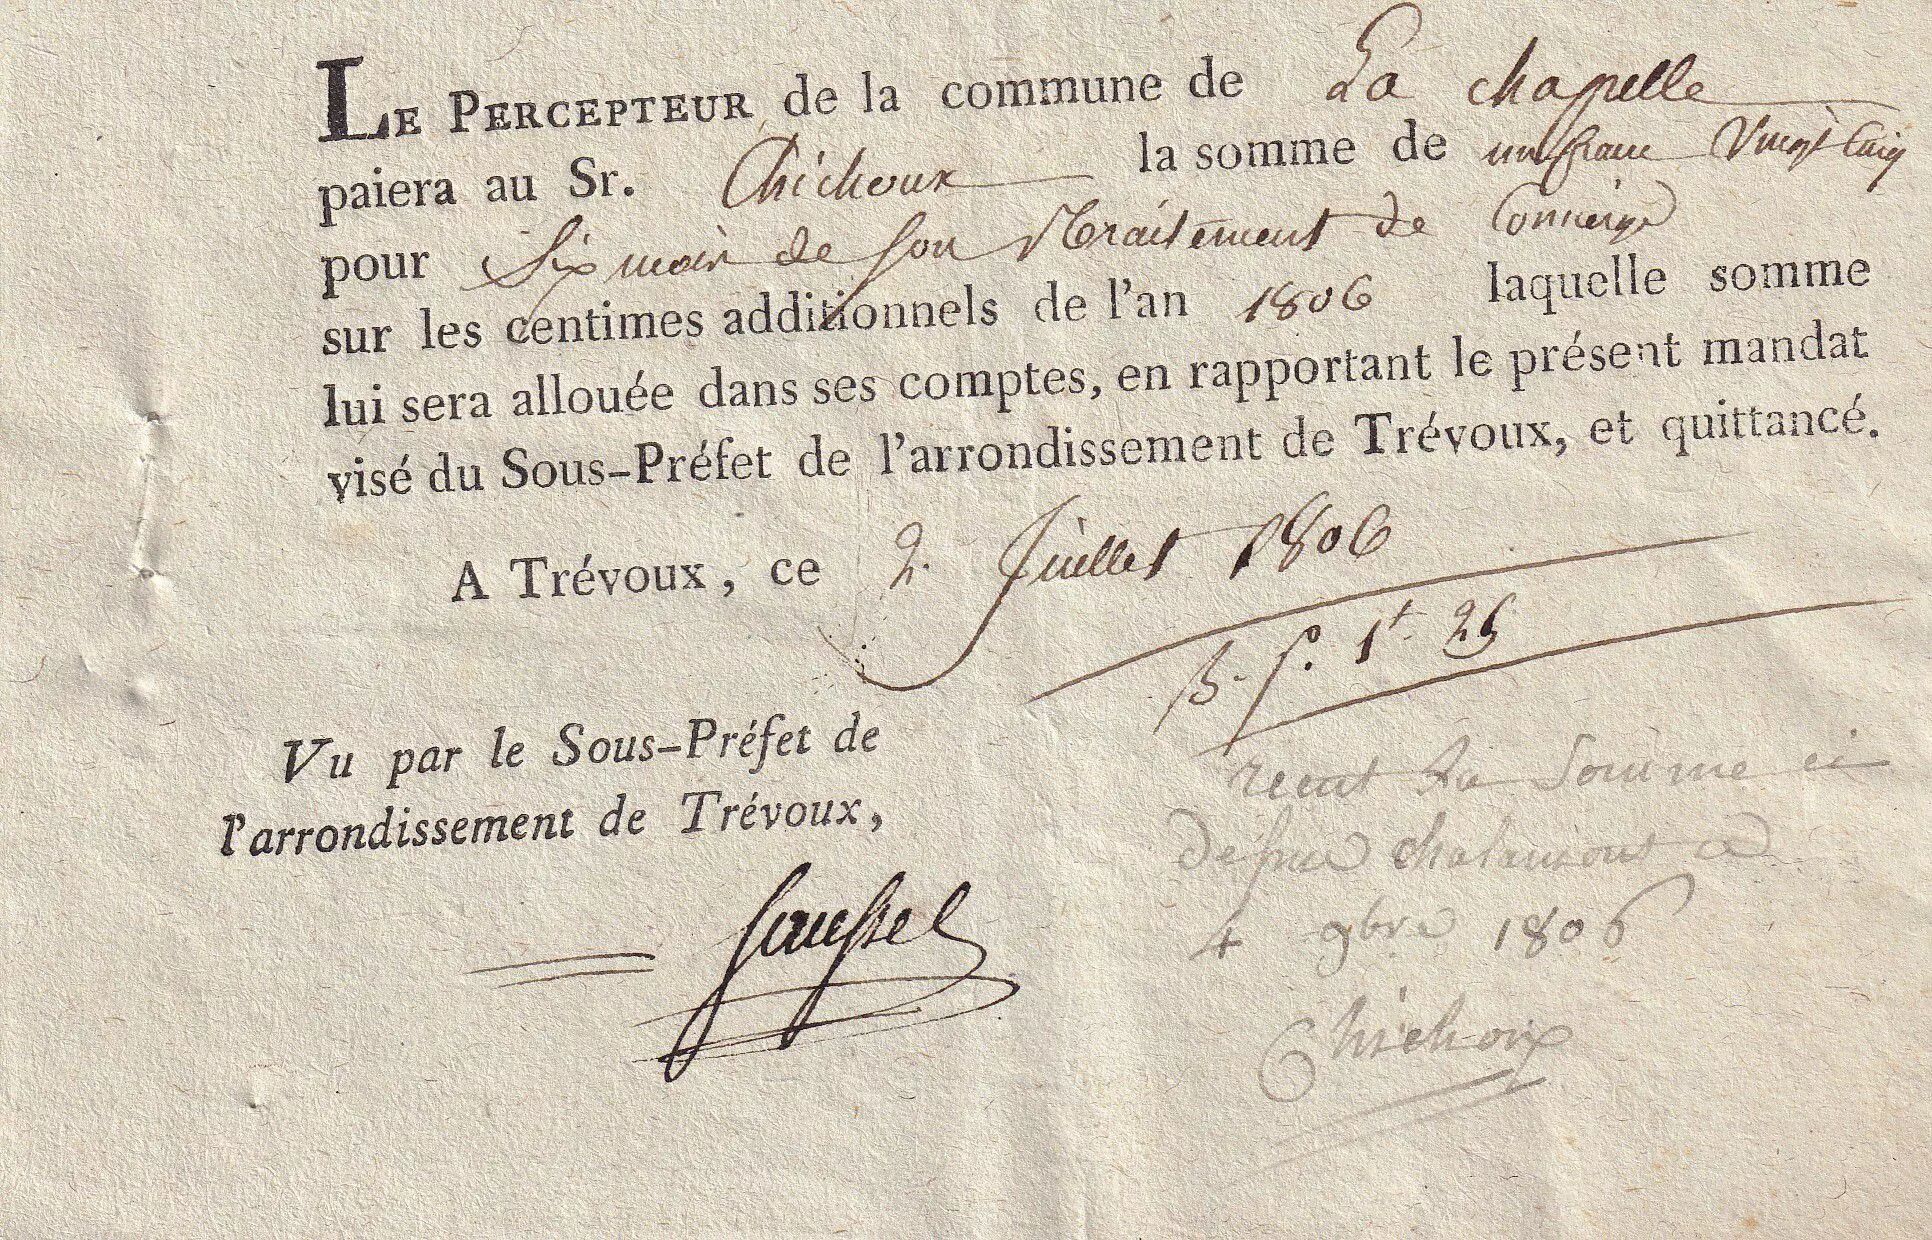 LE PERCEPTEUR de la commune de La chapelle
paiera au Sr. Chichoux la somme de un franc Vingt Cinq
pour Six mois de son Traitement de Concierge
sur les centimes additionnels de l'an 1806 laquelle somme
lui sera allouée dans ses comptes, en rapportant le présent mandat
visé du Sous-Préfet de l'arrondissement de Trévoux, et quittancé.
A Trévoux, ce 2. Juillet 1806
B. P. 1f. 25
Vu par le Sous-Préfet de
l'arrondissement de Trévoux,
recut la Somme ci
desus chalamont a
4 9bre 1806
Chichoux